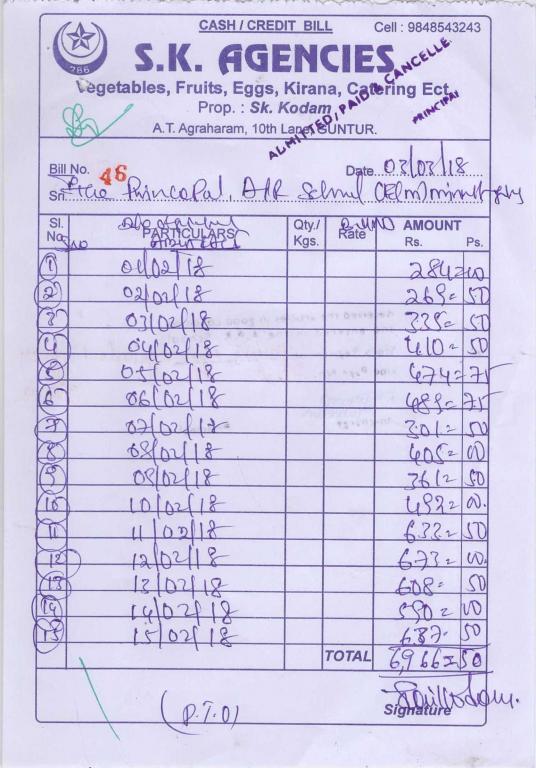 CASH / CREDIT BILL Cell : 9848543243
786
S.K. AGENCIES
Vegetables, Fruits, Eggs, Kirana, Catering Ect.
Prop. : Sk. Kodam
A.T. Agraharam, 10th Lane, GUNTUR.
ADMITTED / PAID & CANCELLE
PRINCIPAL
Bill No. 46 Date 03/03/18
Sri The Principal, APR School
Sl. No. PARTICULARS Qty./ Kgs. Rate AMOUNT Rs. Ps.
1 01/02/18 284=00
2 02/02/18 269=50
3 03/02/18 50
4 04/02/18 410=50
5 05/02/18 474=75
6 06/02/18 75
7 07/02/17 301=50
8 08/02/18 405=00
9 09/02/18 361=50
10 10/02/18 00
11 11/02/18 633=50
12 12/02/18 673=00
13 13/02/18 608=50
14 14/02/18 00
15 15/02/18 637=50
TOTAL 6,966=50
Signature
(P.T.O)